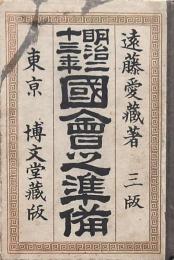 遠藤愛藏著 三版
明治二十三年
國會之準備
東京 博文堂藏版